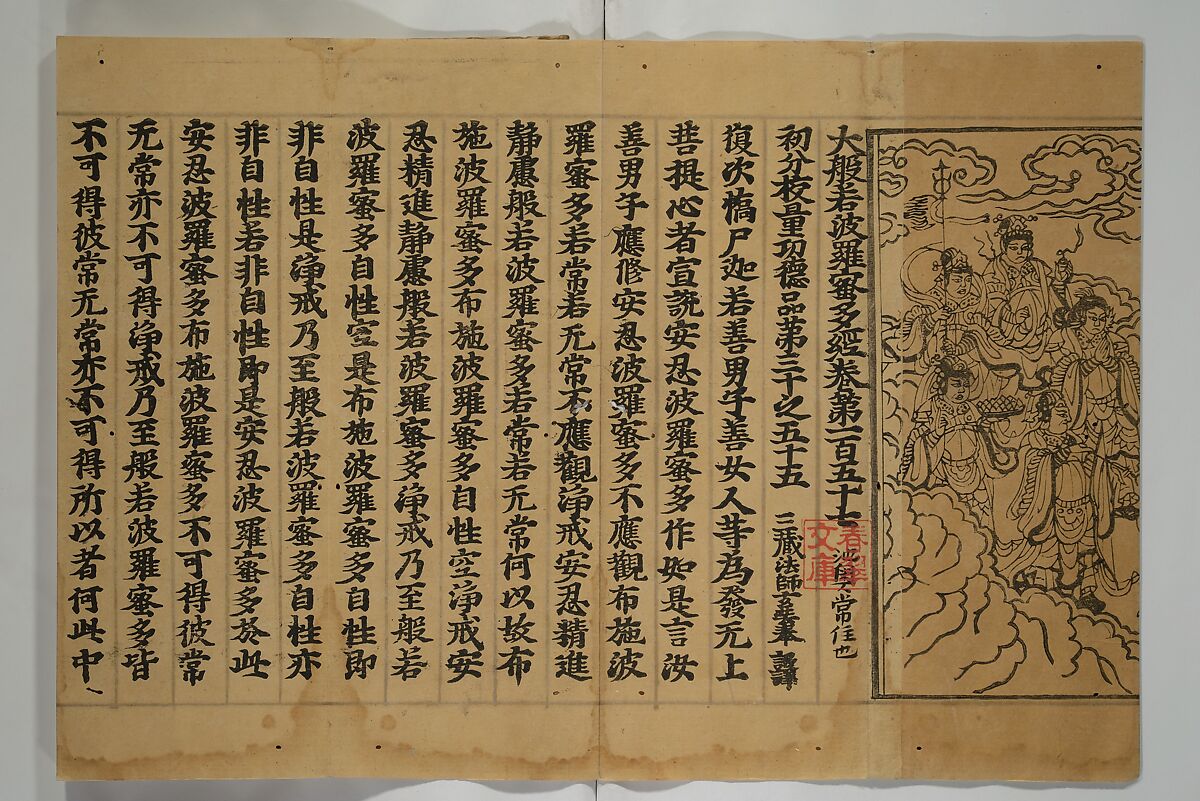 大般若波羅蜜多經卷第一百五十七
常住也
春
文庫
初分校量功德品第三十之五十五 三藏法師玄奘奉 詔譯
復次憍尸迦若善男子善女人等為發无上
菩提心者宣說安忍波羅蜜多作如是言汝
善男子應修安忍波羅蜜多不應觀布施波
羅蜜多若常若无常不應觀淨戒安忍精進
靜慮般若波羅蜜多若常若无常何以故布
施波羅蜜多布施波羅蜜多自性空淨戒安
忍精進靜慮般若波羅蜜多淨戒乃至般若
波羅蜜多自性空是布施波羅蜜多自性即
非自性是淨戒乃至般若波羅蜜多自性亦
非自性若非自性即是安忍波羅蜜多於此
安忍波羅蜜多布施波羅蜜多不可得彼常
无常亦不可得淨戒乃至般若波羅蜜多皆
不可得彼常无常亦不可得所以者何此中